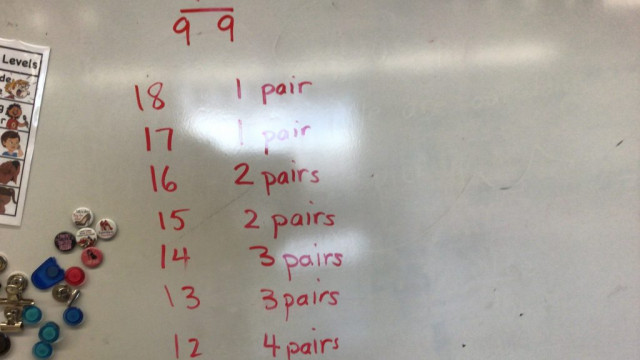 Levels
9 9
18 1 pair
17 1 pair
16 2 pairs
15 2 pairs
14 3 pairs
13 3 pairs
12 4 pairs